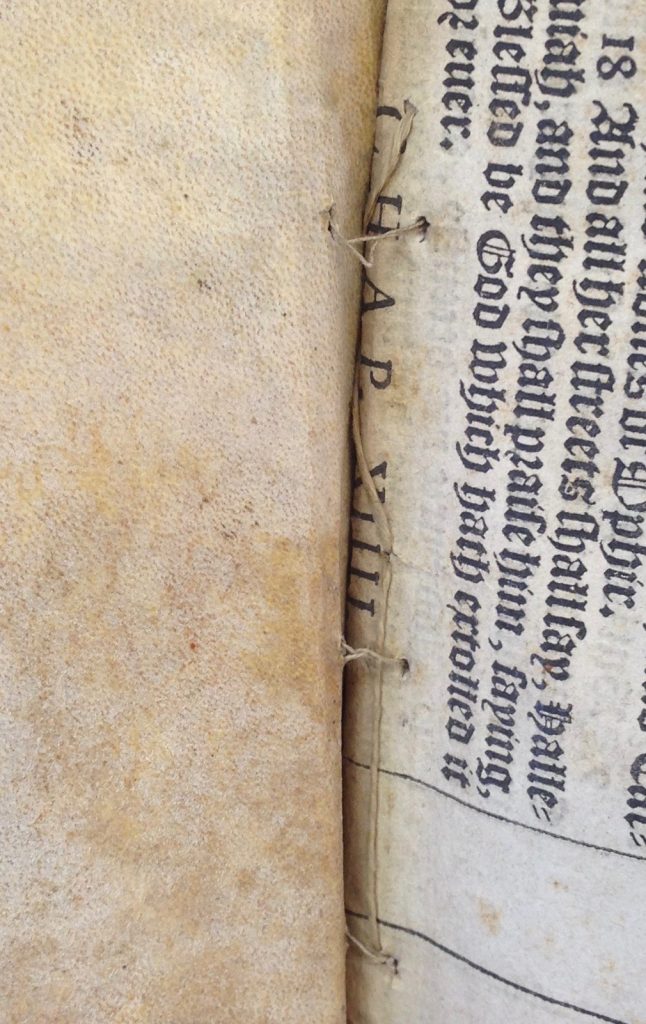 Car=
ſtones of Ophir.
18 And all her ſtreets ſhall ſay, Halle=
uiah, and they ſhall praiſe him, ſaying,
Bleſſed be God which hath extolled it
oꝛ euer.
CHAP. XIIII